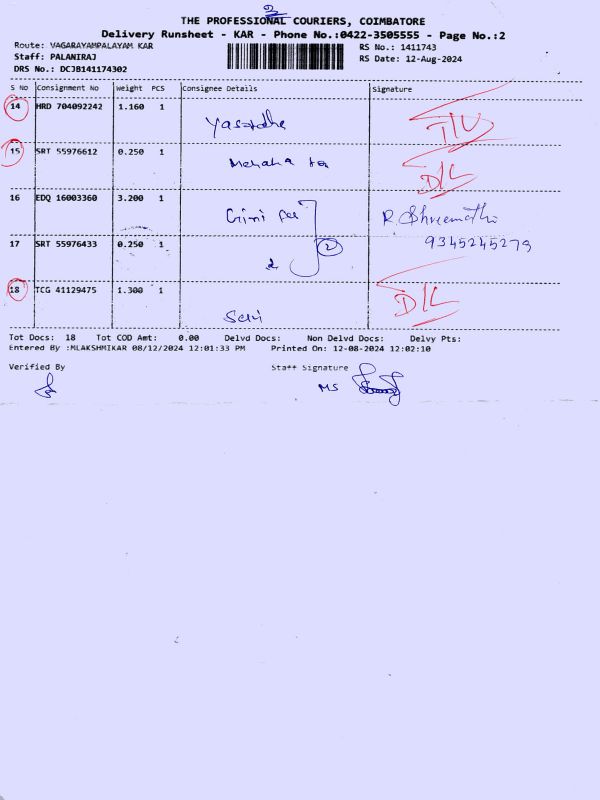 2
THE PROFESSIONAL COURIERS, COIMBATORE
Delivery Runsheet - KAR - Phone No.:0422-3505555 - Page No.:2
Route: VAGARAYAMPALAYAM KAR RS No.: 1411743
Staff: PALANIRAJ RS Date: 12-Aug-2024
DRS No.: DCJB141174302
S No Consignment No Weight PCS Consignee Details Signature
14 HRD 704092242 1.160 1
Yasodha
15 SRT 55976612 0.250 1
D/L
16 EDQ 16003360 3.200 1
R. Shreemathi
9345245279
17 SRT 55976433 0.250 1
2
18 TCG 41129475 1.300 1
D/L
Tot Docs: 18 Tot COD Amt: 0.00 Delvd Docs: Non Delvd Docs: Delvy Pts:
Entered By :MLAKSHMIKAR 08/12/2024 12:01:33 PM Printed On: 12-08-2024 12:02:10
Verified By Staff Signature
MS